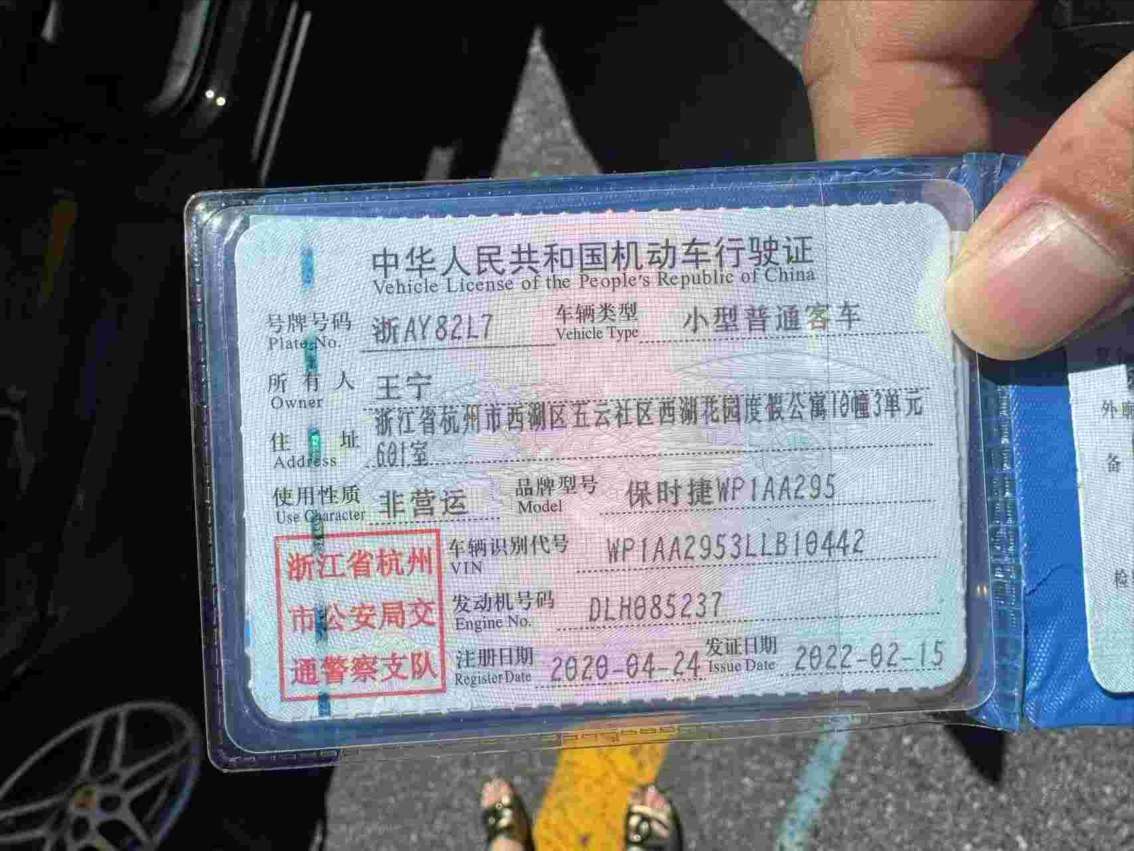 中华人民共和国机动车行驶证
Vehicle License of the People's Republic of China
号牌号码 浙AY82L7 车辆类型 小型普通客车
Plate No. Vehicle Type
所有人 王宁
Owner
住址 浙江省杭州市西湖区五云社区西湖花园度假公寓10幢3单元
Address 601室
使用性质 非营运 品牌型号 保时捷WP1AA295
Use Character Model
浙江省杭州
市公安局交
通警察支队
车辆识别代号 WP1AA2953LLB10442
VIN
发动机号码 DLH085237
Engine No.
注册日期 2020-04-24 发证日期 2022-02-15
Register Date Issue Date
备